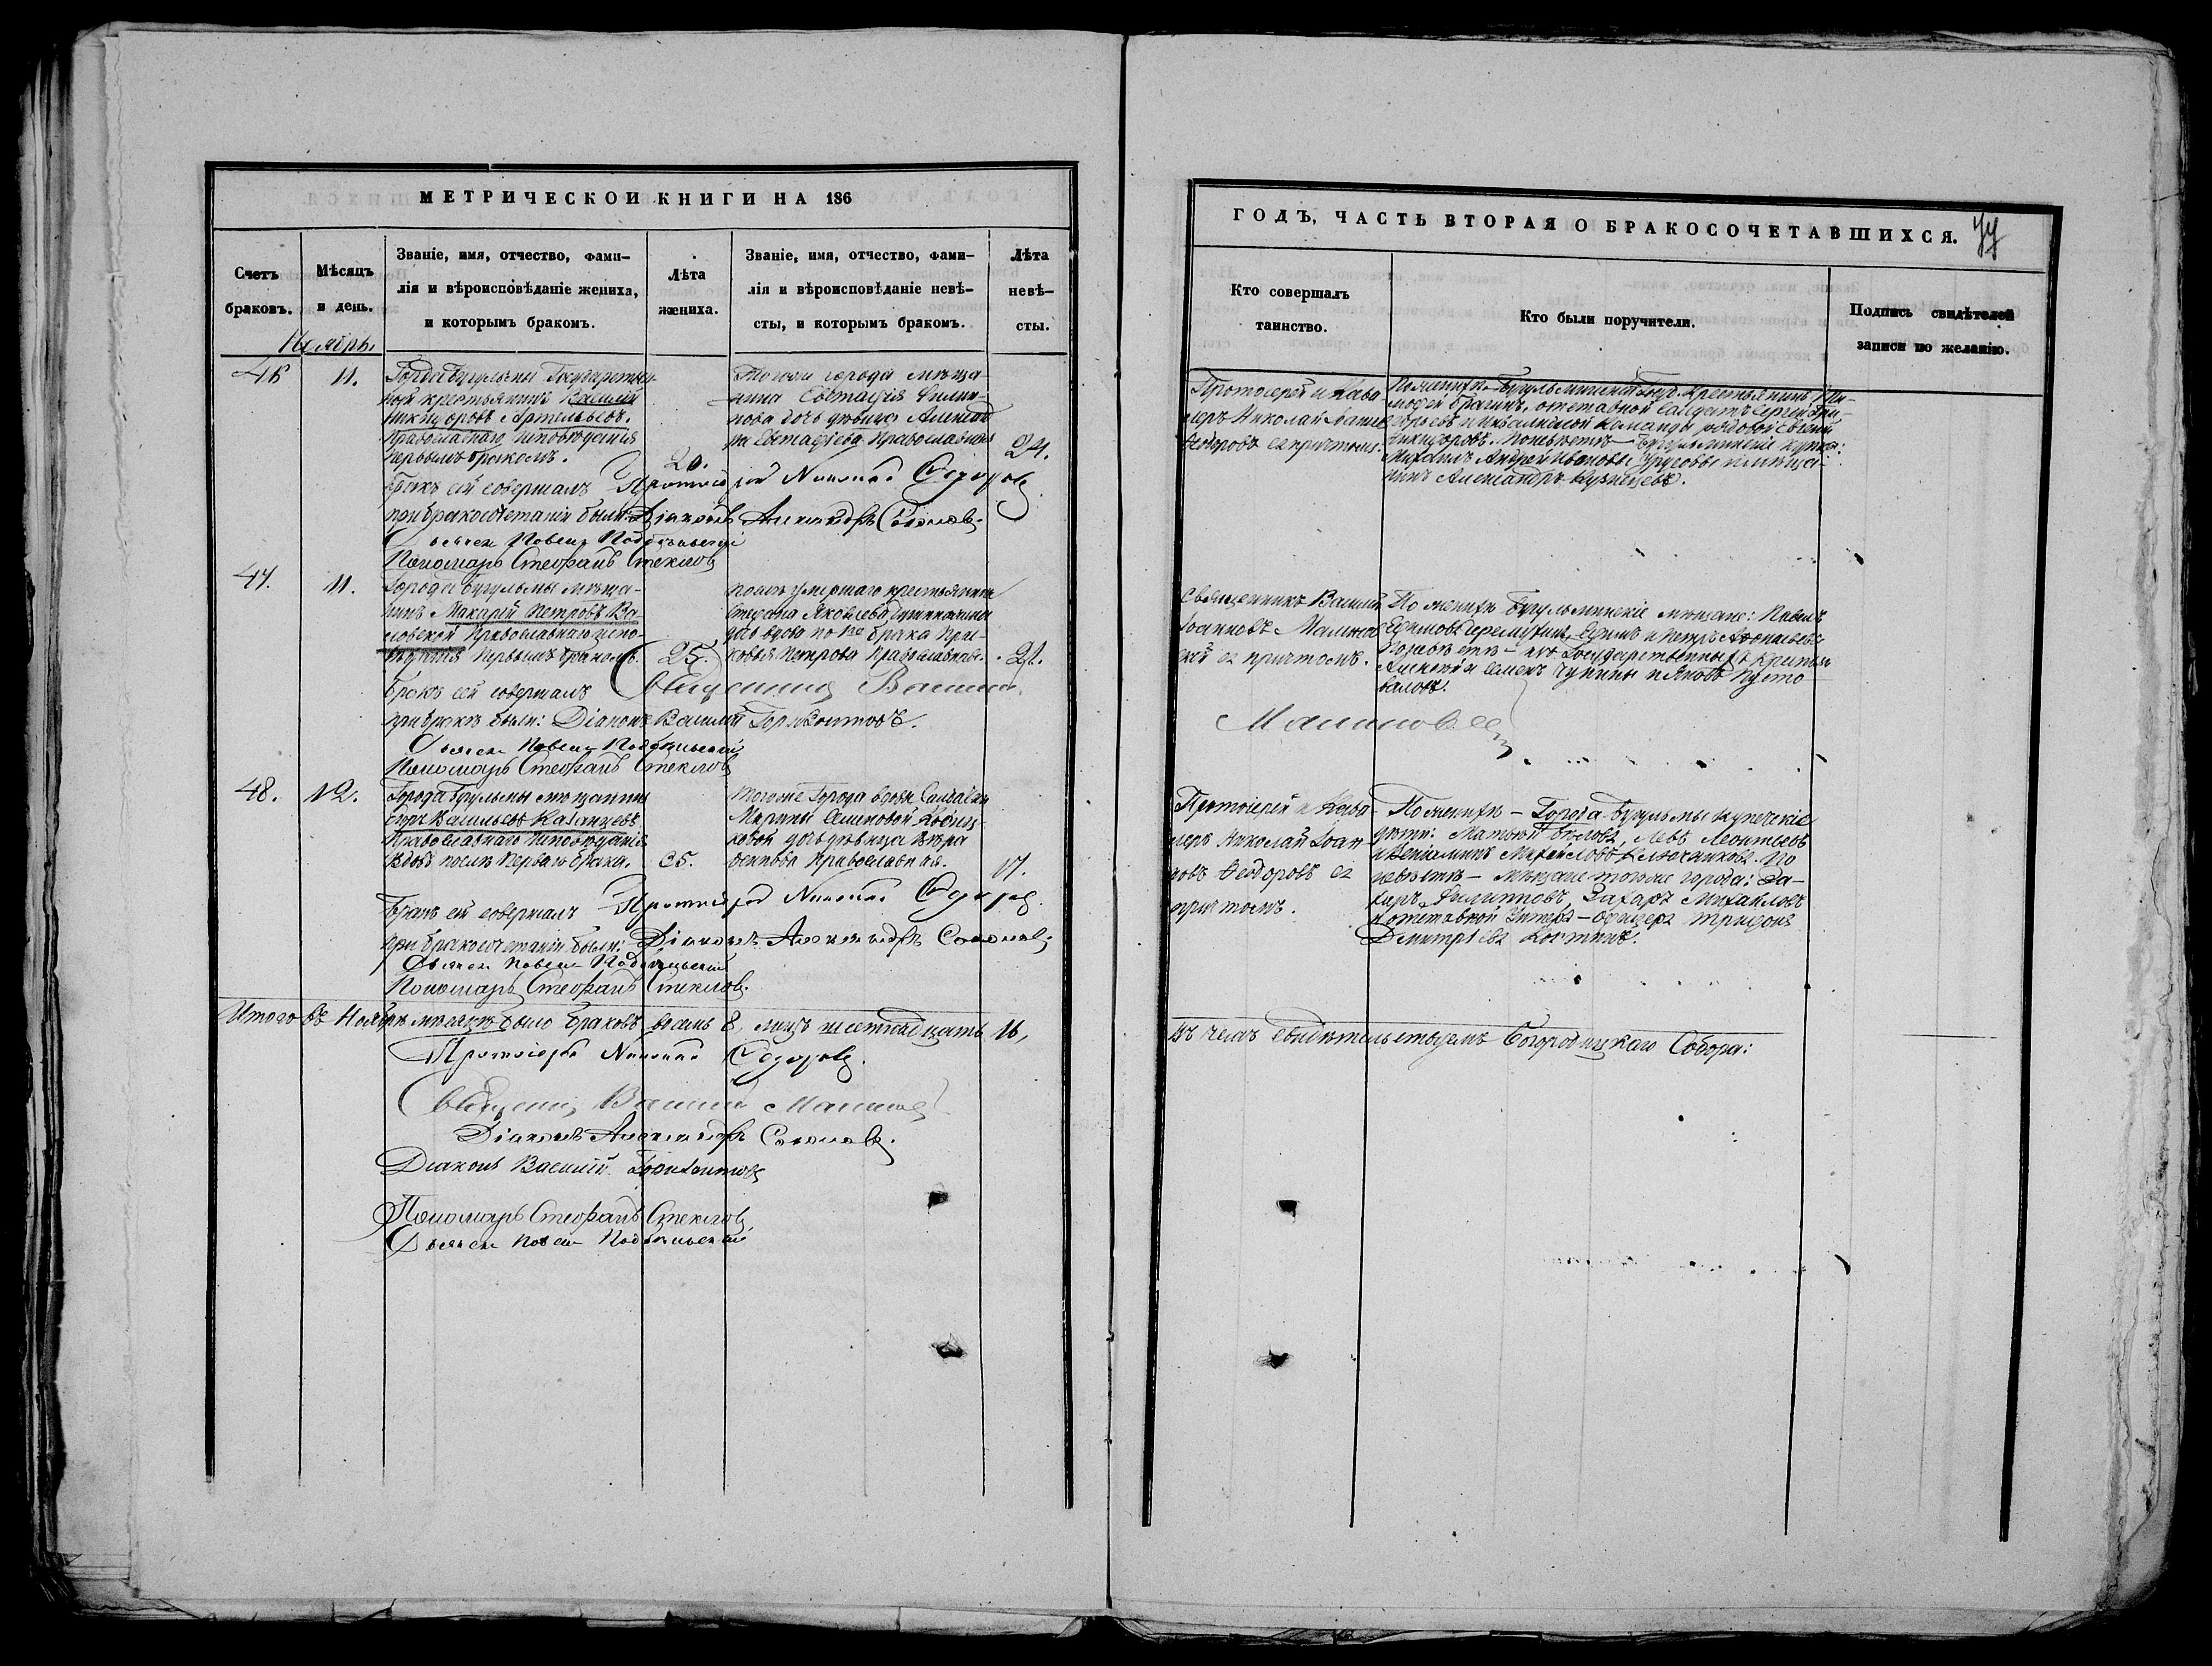 МЕТРИЧЕСКОЙ КНИГИ НА 186
Счетъ браковъ.
Мѣсяцъ и день.
Званіе, имя, отчество, фами-
лія и вѣроисповѣданіе жениха,
и которымъ бракомъ.
Лѣта
жениха.
Званіе, имя, отчество, фами-
лія и вѣроисповѣданіе невѣ-
сты, и которымъ бракомъ.
Лѣта
невѣ-
сты.
Ноябрь
46
11.
Города Бугульмы Государствен-
ный крестьянинъ Василій
Никифоровъ
Православнаго исповѣданія
первымъ бракомъ.
20.
Того же города мѣща-
нина Евстафія Филип-
пова дочь дѣвица Александ-
ра Евстафіева православнаго
24.
Бракъ сей совершалъ Протоіерей Николай Ѳедоровъ
при бракосочетаніи были: Діаконъ Александръ Соколовъ
Дьячекъ Павелъ Подбѣльскій
Пономарь Стефанъ Стекловъ
47.
11.
Города Бугульмы мѣща-
нинъ Макарій Петровъ Ва-
ловской Православнаго испо-
вѣданія первымъ бракомъ.
25.
послѣ умершаго крестьянина
Стефана Яковлева
вдова по 1мъ бракѣ Прас-
ковья Петрова Православнаго.
21.
Бракъ сей совершалъ Священникъ Василій
при бракѣ были: Діаконъ Василій Горизонтовъ.
Дьячекъ Павелъ Подбѣльскій
Пономарь Стефанъ Стекловъ
48.
12.
Города Бугульмы мѣщанинъ
Васильевъ Казанцевъ
Православнаго исповѣданія
вдовъ послѣ перваго брака.
35.
того же Города вдовы Солдатки
Марины Семеновой
дочь дѣвица Вѣра
Осипова православнаго.
17.
Бракъ сей совершалъ Протоіерей Николай Ѳедоровъ
при бракосочетаніи были: Діаконъ Александръ Соколовъ
Дьячекъ Павелъ Подбѣльскій
Пономарь Стефанъ Стекловъ.
Итого въ Ноябрѣ мѣсяцѣ было браковъ восемь 8, лицъ шестнадцать 16,
Протоіерей Николай Ѳедоровъ.
Священникъ Василій Малиновскій
Діаконъ Александръ Соколовъ.
Діаконъ Василій Горизонтовъ
Пономарь Стефанъ Стекловъ
Дьячекъ Павелъ Подбѣльскій
ГОДЪ, ЧАСТЬ ВТОРАЯ О БРАКОСОЧЕТАВШИХСЯ.
Кто совершалъ
таинство.
Кто были поручители.
Подпись свидѣтелей
записи по желанію.
Протоіерей и Кава-
леръ Николай Іоанновъ
Ѳедоровъ съ причтомъ.
По женихѣ Бугульминскій Госуд. Крестьянинъ Ти-
мофей Брагинъ, отставной Солдатъ Сергей Гри-
горьевъ и инвалидной команды рядовой Евгеній
Никифоровъ. По невѣстѣ – Бугульминскіе купцы:
Андрей Ивановы и мѣща-
нинъ Александръ Кузнецовъ.
Священникъ Василій
Іоанновъ Малинов-
скій съ причтомъ.
По женихѣ Бугульминскіе мѣщане: Павелъ
Ефимовъ Ефимъ и Петръ
По невѣстѣ – изъ Государственныхъ Крестьянъ
Алексѣй и Семенъ Чукины и Яковъ Пусто-
валовъ.
Малиновскій
Протоіерей и Кава-
леръ Николай Іоан-
новъ Ѳеодоровъ съ
причтомъ.
По женихѣ – Города Бугульмы купеческіе
дѣти: Матвей Бѣловъ, Левъ Леонтьевъ
и Веніаминъ Михайловъ Ключниковъ. По
невѣстѣ – мѣщане того же города: За-
харъ Филипповъ, Захаръ Михайловъ
и отставной Унтеръ-Офицеръ Трифонъ
Дмитріевъ
въ чемъ свидѣтельствуемъ Богородицкаго Собора: